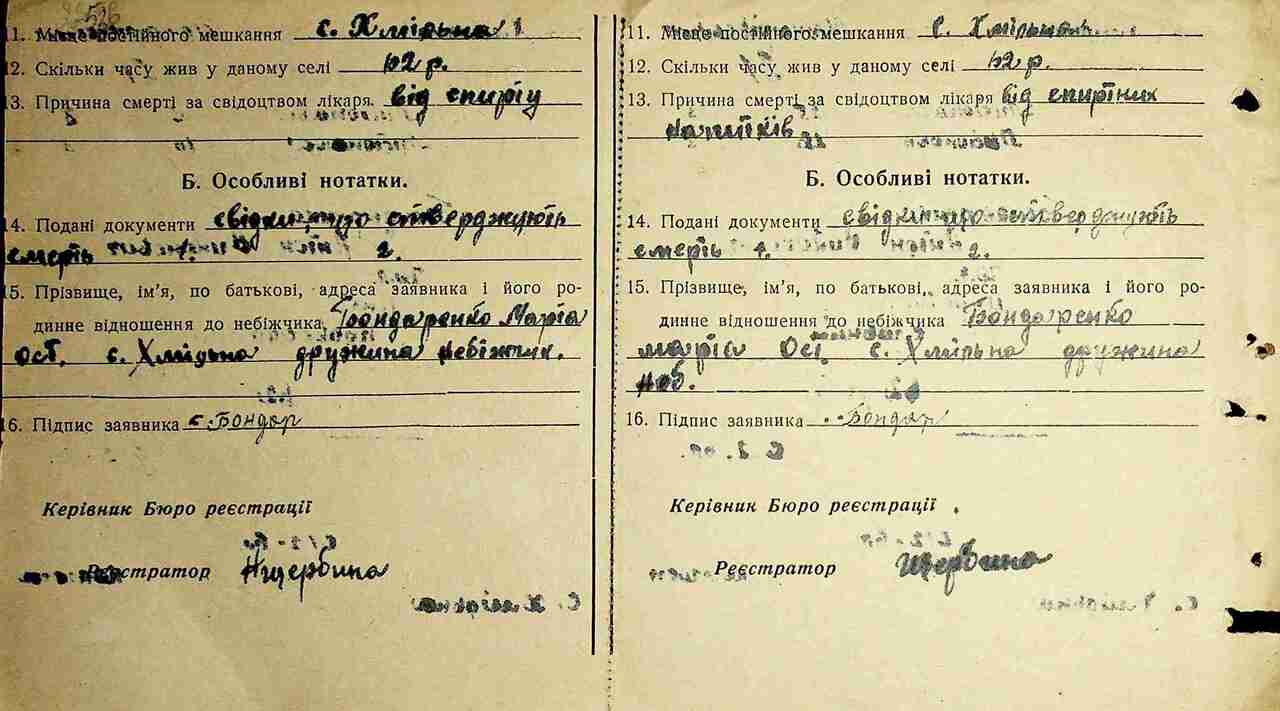 11. Місце постійного мешкання с. Хмільна
12. Скільки часу жив у даному селі 42 р.
13. Причина смерті за свідоцтвом лікаря. від спирту
Б. Особливі нотатки.
14. Подані документи свідки про стверджують
смерть 1. 2.
15. Прізвище, ім’я, по батькові, адреса заявника і його ро-
динне відношення до небіжчика Бондаренко Марія
Ост. с. Хмільна дружина небіжчик.
16. Підпис заявника Бондар
Керівник Бюро реєстрації
Реєстратор Щербина
11. Місце постійного мешкання с. Хмільна
12. Скільки часу жив у даному селі 42 р.
13. Причина смерті за свідоцтвом лікаря від спиртних
напитків
Б. Особливі нотатки.
14. Подані документи свідки про стверджують
смерть 1. 2.
15. Прізвище, ім’я, по батькові, адреса заявника і його ро-
динне відношення до небіжчика Бондаренко
Марія Ост. с. Хмільна дружина
неб.
16. Підпис заявника Бондар
Керівник Бюро реєстрації
Реєстратор Щербина